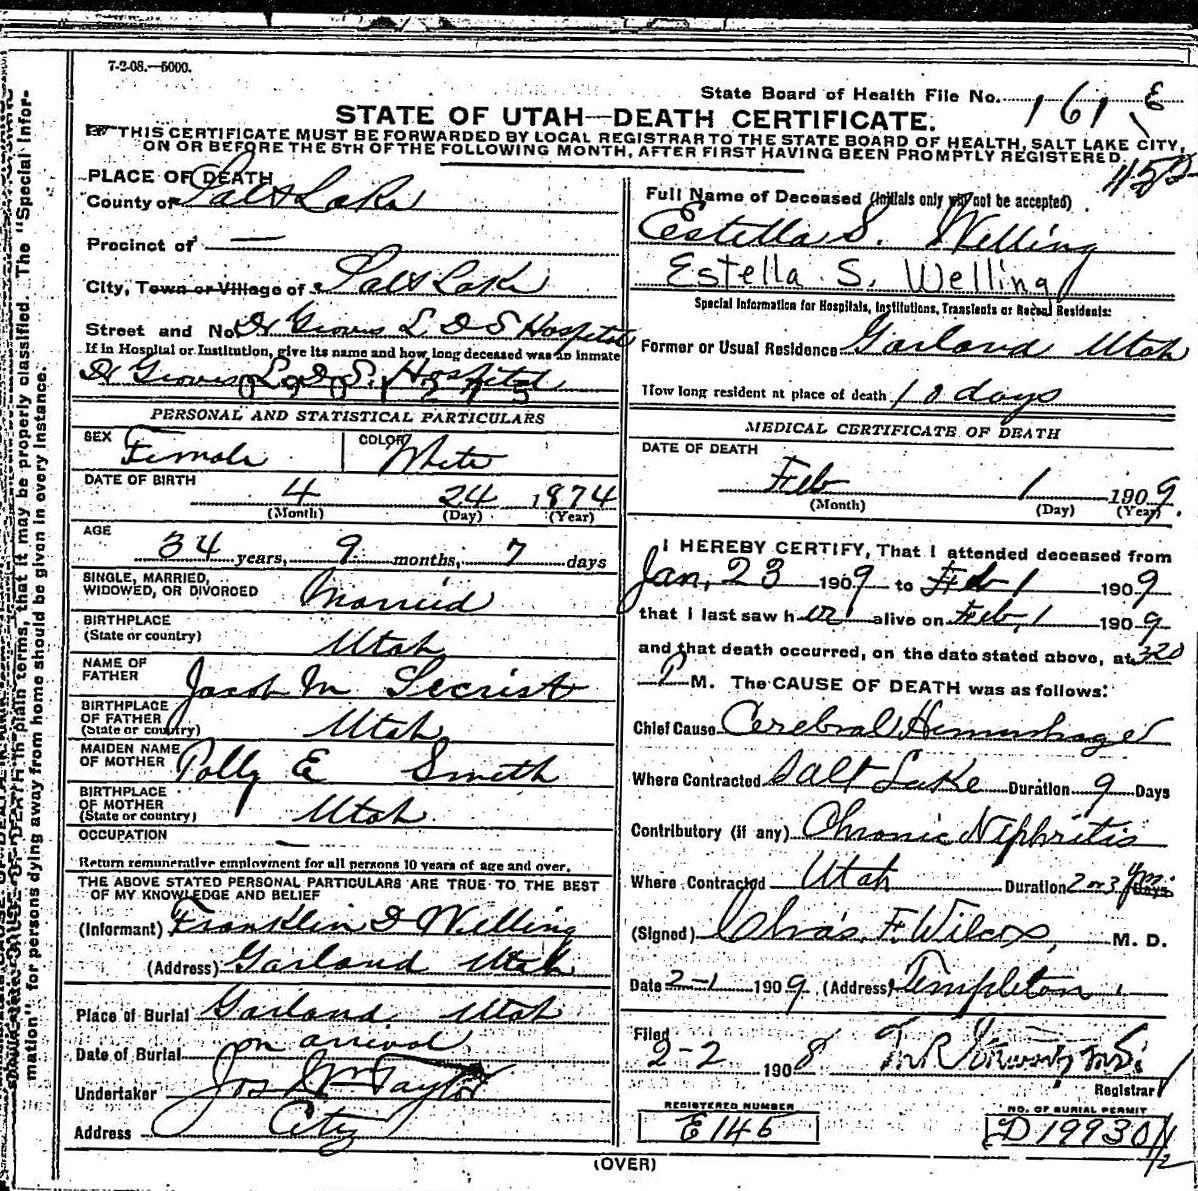 7-2-08.—5000.
State Board of Health File No. 161 E
STATE OF UTAH—DEATH CERTIFICATE.
THIS CERTIFICATE MUST BE FORWARDED BY LOCAL REGISTRAR TO THE STATE BOARD OF HEALTH, SALT LAKE CITY,
ON OR BEFORE THE 5TH OF THE FOLLOWING MONTH, AFTER FIRST HAVING BEEN PROMPTLY REGISTERED.
PLACE OF DEATH
County of Salt Lake
Precinct of —
City, Town or Village of Salt Lake
Street and No. Dr Groves L D S Hospital
If in Hospital or Institution, give its name and how long deceased was an inmate
Dr Groves L. D. S. Hospital
PERSONAL AND STATISTICAL PARTICULARS
SEX Female COLOR White
DATE OF BIRTH 4 24 1874
(Month) (Day) (Year)
AGE 34 years, 9 months, 7 days
SINGLE, MARRIED,
WIDOWED, OR DIVORCED Married
BIRTHPLACE
(State or country) Utah
NAME OF
FATHER Jacob M Secrist
BIRTHPLACE
OF FATHER
(State or country) Utah
MAIDEN NAME
OF MOTHER Polly E Smith
BIRTHPLACE
OF MOTHER
(State or country) Utah
OCCUPATION —
Return remunerative employment for all persons 10 years of age and over.
THE ABOVE STATED PERSONAL PARTICULARS ARE TRUE TO THE BEST
OF MY KNOWLEDGE AND BELIEF
(Informant) Franklin D Welling
(Address) Garland Utah
Place of Burial Garland Utah
Date of Burial on arrival
Undertaker Jos Wm Taylor
Address City
Full Name of Deceased (Initials only will not be accepted)
Estella S. Welling
Estella S. Welling
Special Information for Hospitals, Institutions, Transients or Recent Residents:
Former or Usual Residence Garland Utah
How long resident at place of death 10 days
MEDICAL CERTIFICATE OF DEATH
DATE OF DEATH
Feb 1 1909.
(Month) (Day) (Year)
I HEREBY CERTIFY, That I attended deceased from
Jan, 23 1909 to Feb 1 1909
that I last saw her alive on Feb, 1 1909
and that death occurred, on the date stated above, at 320
P M. The CAUSE OF DEATH was as follows:
Chief Cause Cerebral Hemorrhage
Where Contracted Salt Lake Duration 9 Days
Contributory (if any) Chronic Nephritis
Where Contracted Utah Duration 2 or 3 yrs. Days
(Signed) Chas. F. Wilcox, M. D.
Date 2-1 1909 (Address) Templeton
Filed
2-2 1908
Registrar
REGISTERED NUMBER
E146
NO. OF BURIAL PERMIT
D 19930
(OVER)
in plain terms, that it may be properly classified. The "Special Infor-
mation" for persons dying away from home should be given in every instance.